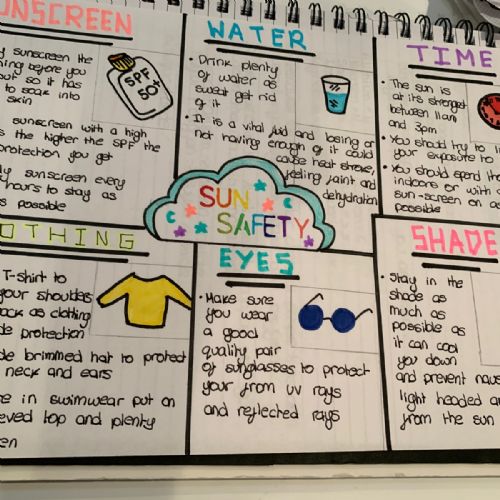 NSCREEN
y sunscreen the
ning before you
out so it has
to soak into
skin
sunscreen with a high
s the higher the SPF the
protection you get
ly sunscreen every
hours to stay as
s possible
SPF
50+
WATER
• Drink plenty
of water as
sweat get rid
of it
• It is a vital fluid and losing or
not having enough of it could
cause heat stroke,
feeling faint and
dehydration
TIME
• The sun is
at its strongest
between 11am
and 3pm
• You should try to
your exposure to
• You should spend the
indoors or with
sun-screen on as
possible
SUN
SAFETY
OTHING
T-shirt to
your shoulders
back as clothing
de protection
de brimmed hat to protect
neck and ears
re in swimwear put on
eved top and plenty
en
EYES
• Make sure
you wear
a good
quality pair
of sunglasses to protect
your from UV rays
and reflected rays
SHADE
• Stay in the
shade as
much as
possible as
it can cool
you down
and prevent
light headed
from the sun